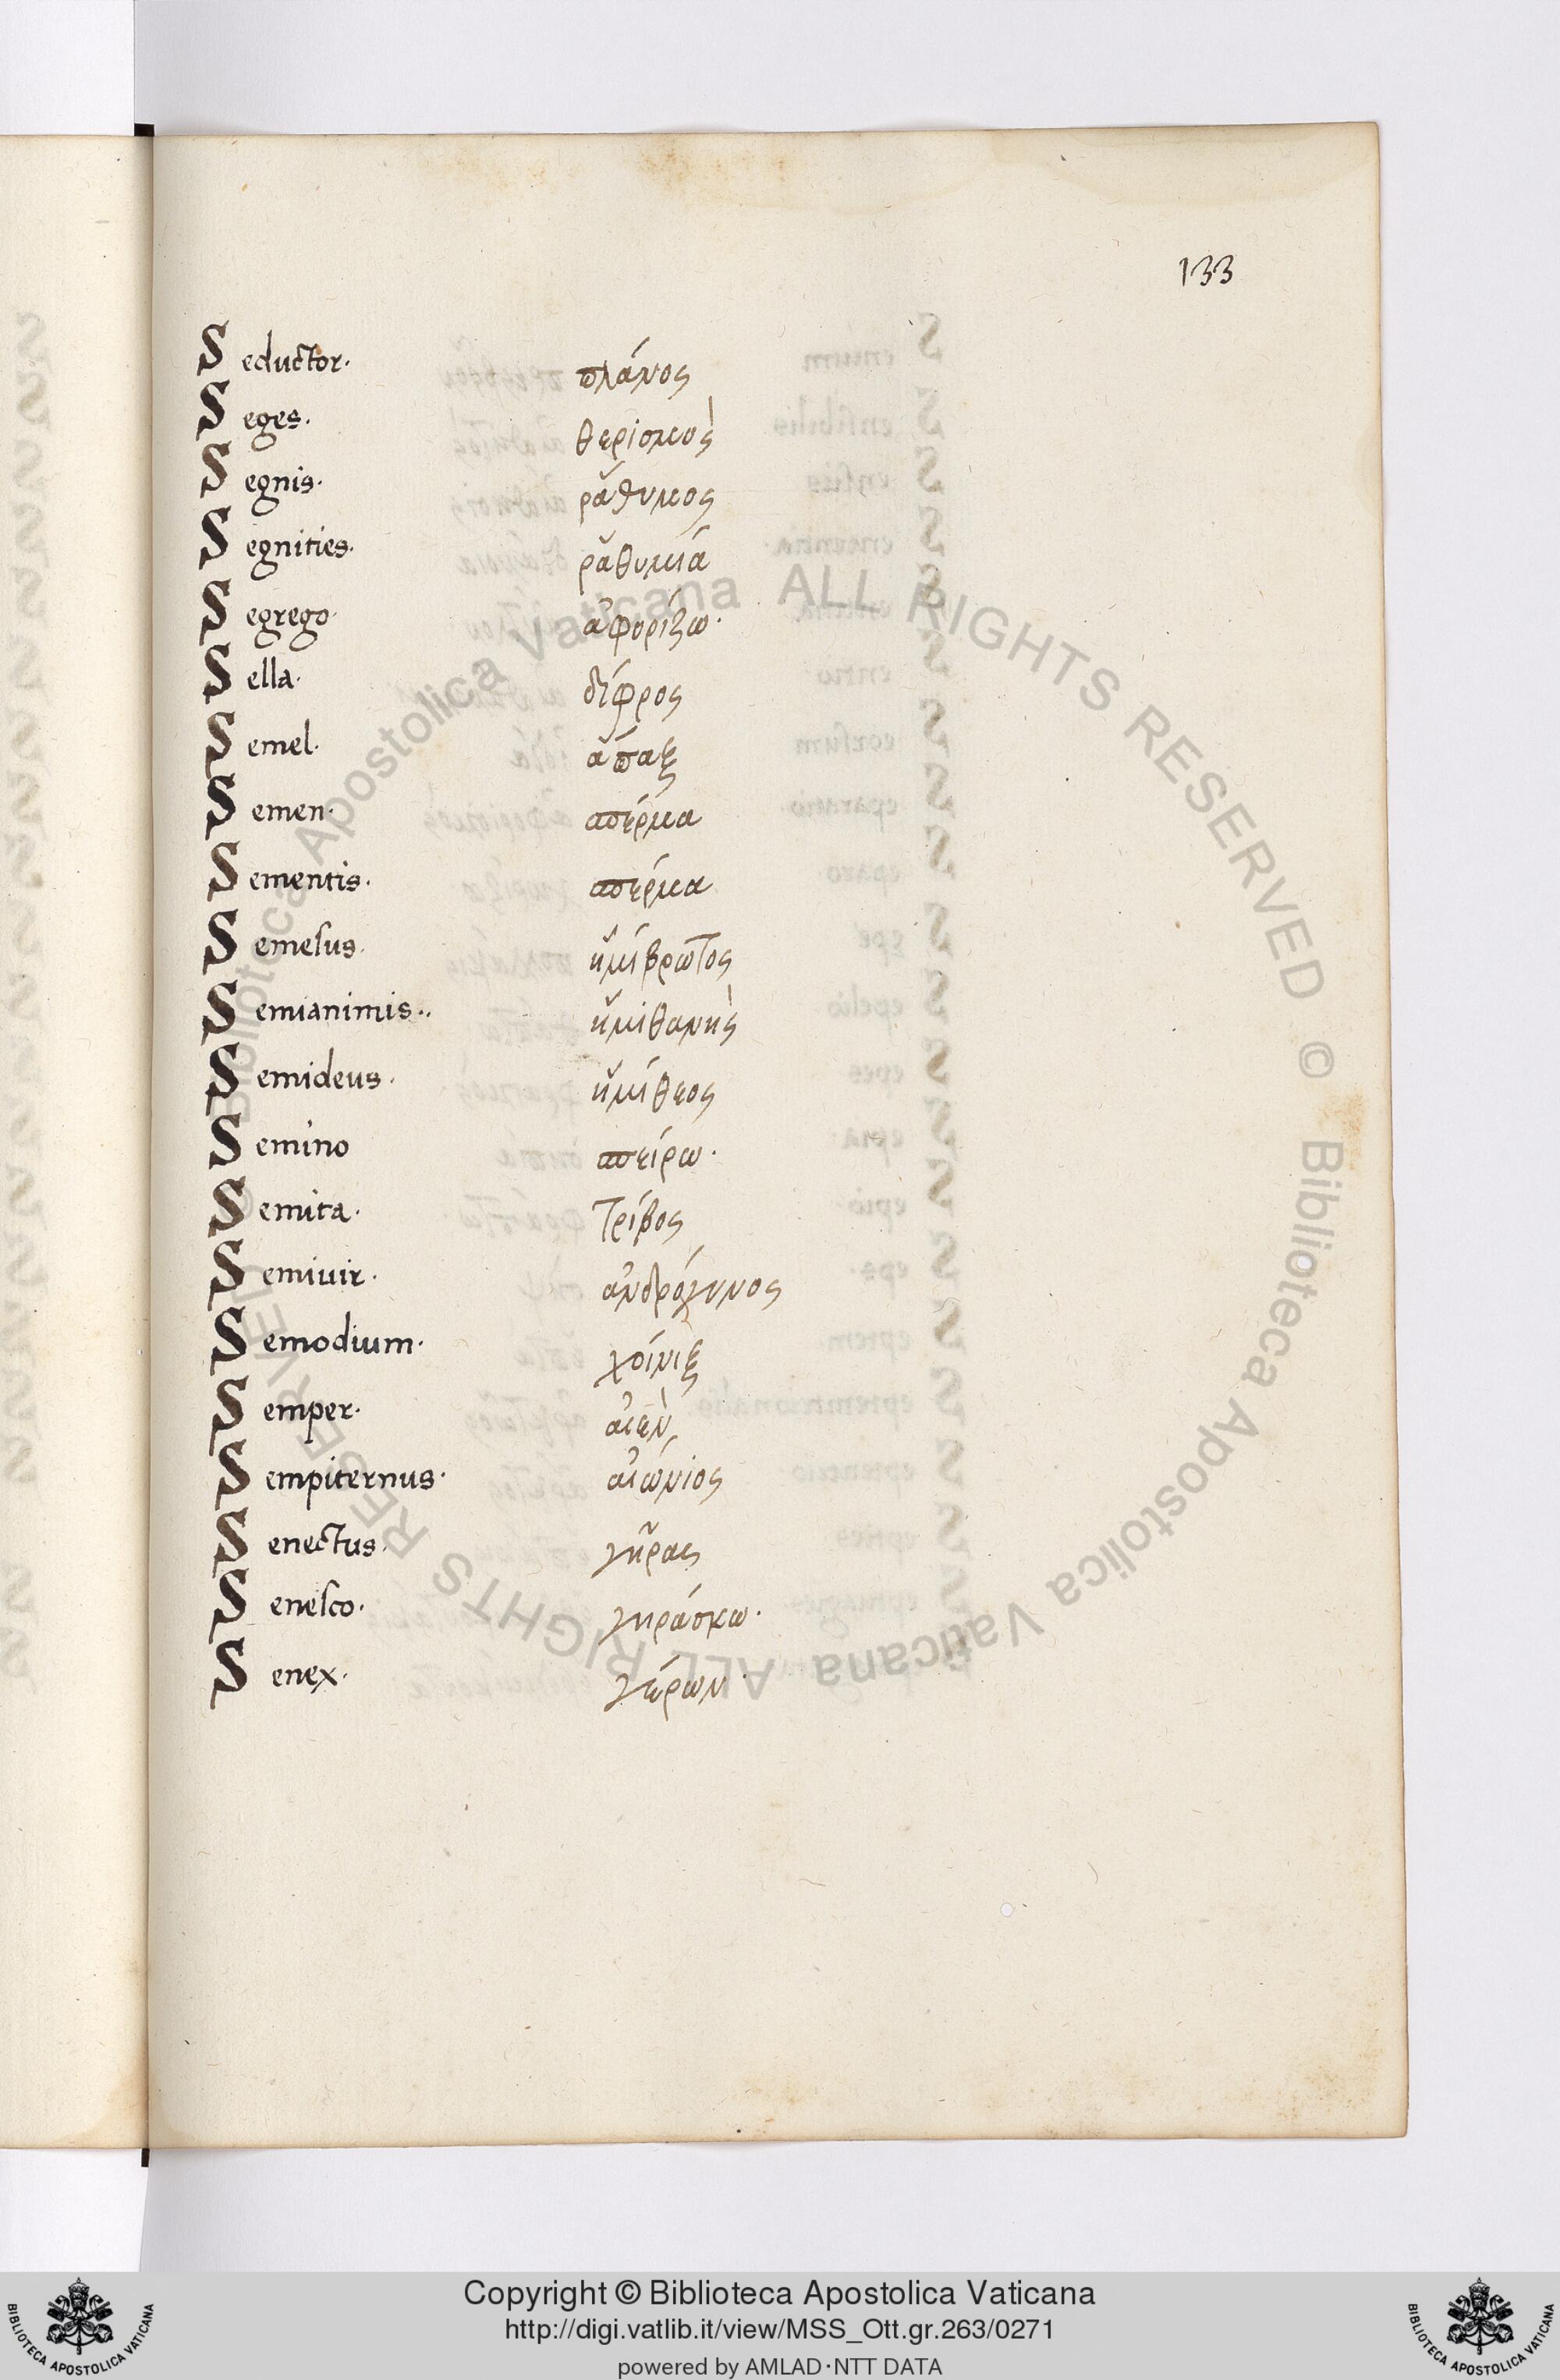 133
Seductor· πλάνος
Seges· θερισμὸς
Segnis· ῥάθυμος
Segnities· ῥαθυμία
Segrego· ἀφορίζω·
Sella· δίφρος
Semel· ἅπαξ
Semen· σπέρμα
Sementis· σπέρμα
Semesus· ἡμίβρωτος
Semianimis·· ἡμιθανὴς
Semideus· ἡμίθεος
Semino σπείρω·
Semita· τρίβος
Semiuir· ἀνδρόγυνος
Semodium· χοίνιξ
Semper· ἀιὲν
Sempiternus· ἀιώνιος
Senectus· γῆρας
Senesco· γηράσκω·
Senex· γέρων·
Biblioteca Apostolica Vaticana ALL RIGHTS RESERVED © Biblioteca Apostolica Vaticana ALL RIGHTS RESERVED ©
Copyright © Biblioteca Apostolica Vaticana
http://digi.vatlib.it/view/MSS_Ott.gr.263/0271
powered by AMLAD·NTT DATA
BIBLIOTECA APOSTOLICA VATICANA
BIBLIOTECA APOSTOLICA VATICANA